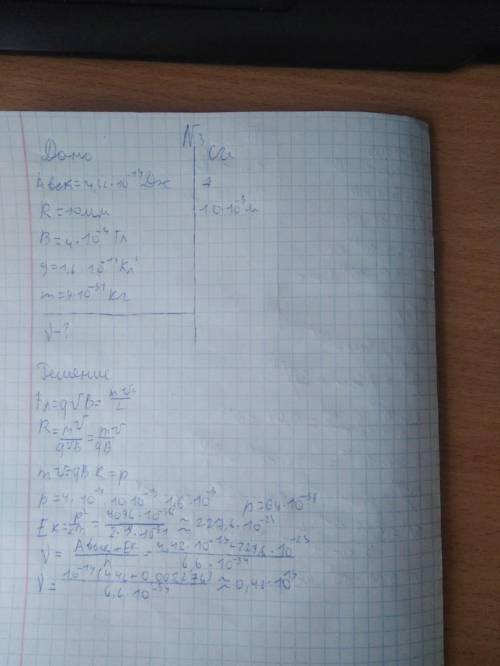 N3
Дано
СИ
Aвых=4,42·10⁻¹⁹Дж
R=10мм
10·10⁻³м
B=4·10⁻⁴Тл
q=1,6·10⁻¹⁹Кл
m=9·10⁻³¹кг
ν-?
Решение
Fл=qvB=mv²/R
R=mv²/qvB=mv/qB
mv=qBR=p
p=4·10⁻⁴·10·10⁻³·1,6·10⁻¹⁹ p=64·10⁻²⁶
Eк=p²/2m=4096·10⁻⁵²/2·9·10⁻³¹≈227,6·10⁻²³
ν=Aвых+Eк/h=4,42·10⁻¹⁹+227,6·10⁻²³/6,6·10⁻³⁴
ν=10⁻¹⁹(4,42+0,002276)/6,6·10⁻³⁴≈0,43·10